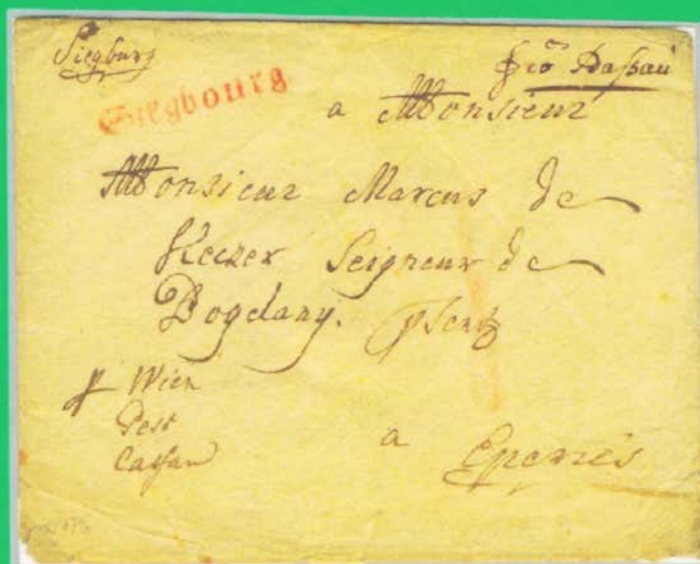 Siegburg
fco Passau
Siegbourg
a Monsieur
Monsieur Marcus de
Keczer Seigneur de
Bogdany. psentz
p Wien
Pest
Cassau
a Eperies